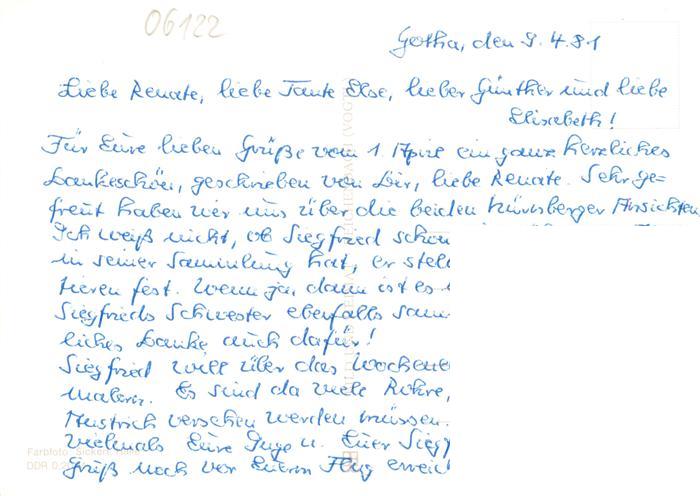 06122
Gotha, den 9.4.81
Liebe Renate, liebe Tante Else, lieber Günther und liebe
Elisabeth!
Für Eure lieben Grüße vom 1. April ein ganz herzliches
Dankeschön, geschrieben von Dir, liebe Renate. Sehr ge=
freut haben wir uns über die beiden Nürnberger Ansichten
Ich weiß nicht, ob Siegfried schon
in seiner Sammlung hat, er stell
tieren fest. Wenn ja, dann ist es
Siegfrieds Schwester ebenfalls sam
liches Danke auch dafür!
Siegfried will über das Wochene
malern. Es sind da viele Rohre,
Anstrich versehen werden müssen.
Vielmals Eure Inge u. Euer Sieg
Gruß noch vor Eurem Flug erreic
Farbfoto: Sickert
DDR 0,2